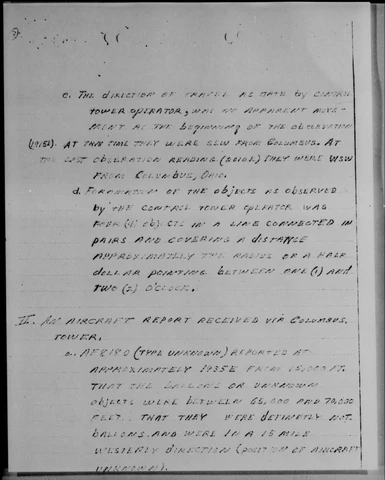 c. THE DIRECTION OF TRAVEL AS GATE by CONTROL
TOWER OPERATOR, WAS AN APPARENT MOVE-
MENT AT THE bEginning OF THE OBSERVATION
AT THAT TIME THEY WERE SSW FROM COLUMBUS. AT
THE LAST OBSERATION READING (2010E) THEY WERE WSW
FROM COLUMBUS, OHIO.
d. FORMATION OF THE OBJECTS AS OBSERVED
by THE CONTROL TOWER OPERATOR WAS
FOUR (4) OBJECTS IN A LINE CONNECTED IN
PAIRS AND COVERING A DISTANCE
APPROXIMATELY THE RADIUS OF A HALF
DOLLAR POINTING BETWEEN ONE (1) AND
TWO (2) O'CLOCK.
II. AN AIRCRAFT REPORT RECEIVED VIA COLUMBUS
TOWER.
a. AF8180 (TYPE UNKNOWN) REPORTED AT
APPROXIMATELY 1935E FROM 15,000 FT.
THAT THE BALLONS OR UNKNOWN
OBJECTS WERE BETWEEN 65,000 AND 70,000
FEET. THAT THEY WERE DEFINETLY NOT
BALLONS AND WERE IN A 15 MILE
WESTERLY DIRECTION (POSITION OF AIRCRAFT
UNKNOWN).